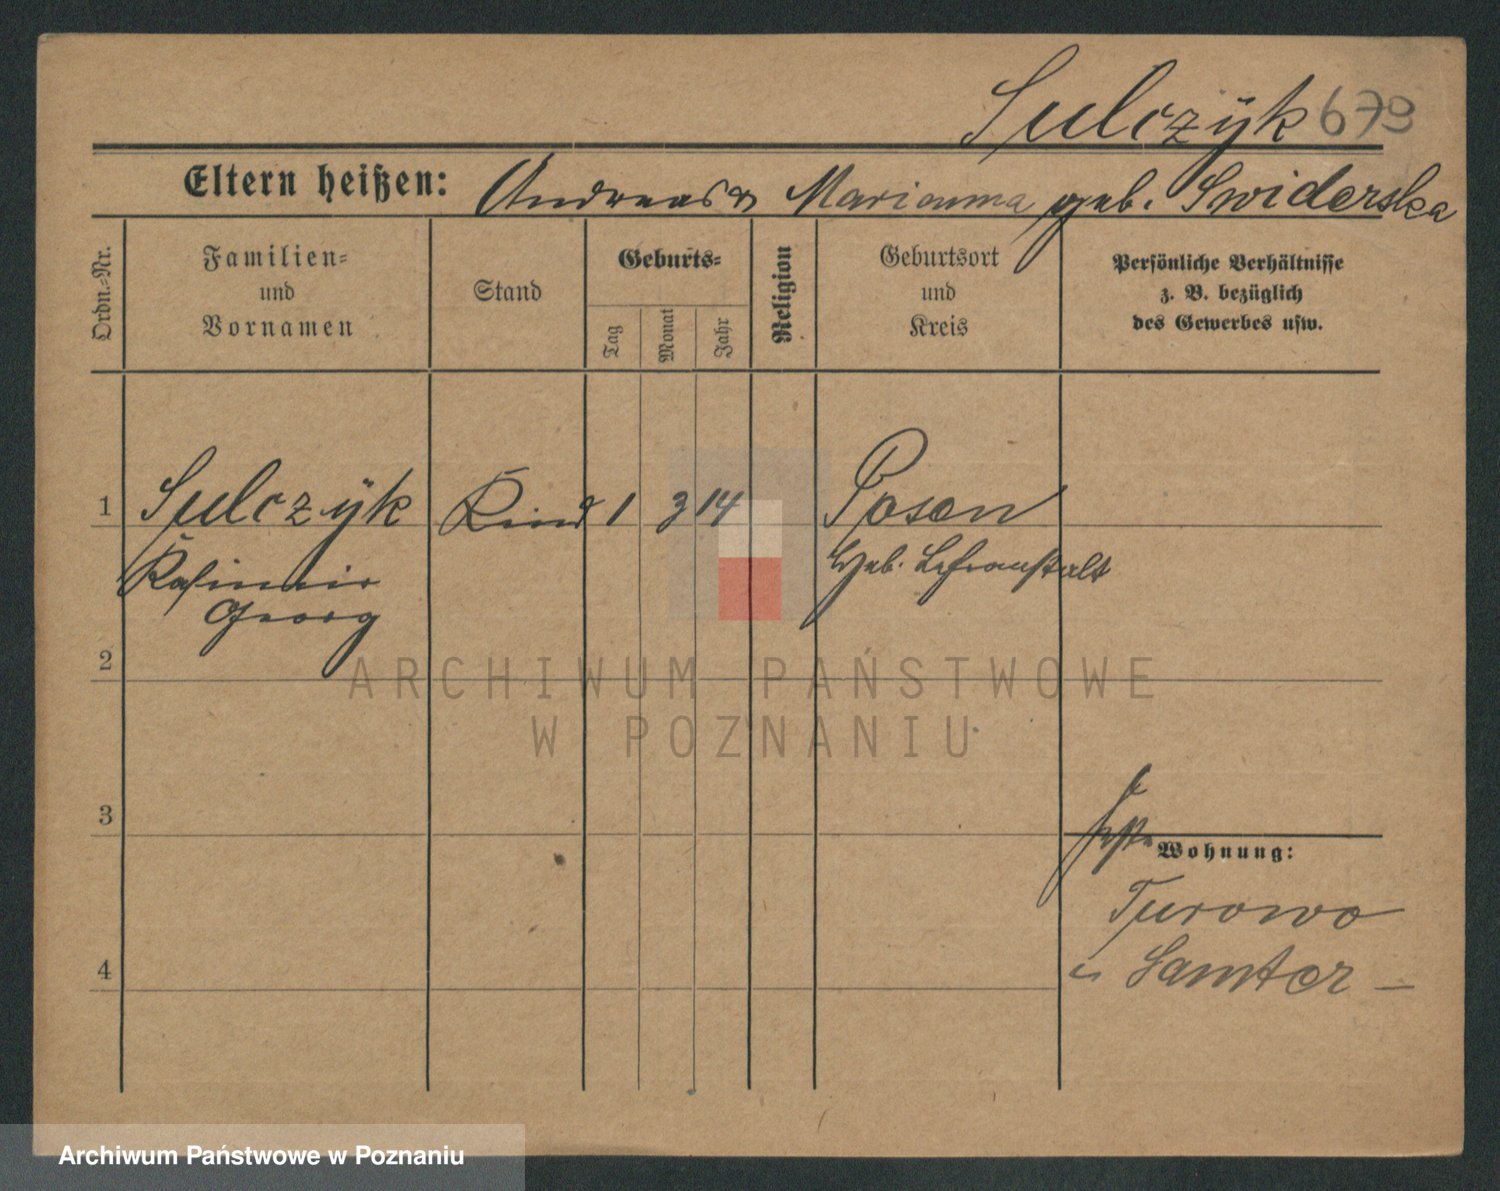 Sulczyk 679
Eltern heißen: Andreas u Marianna geb. Swiderska
Ordn.-Nr.
Familien-
und
Vornamen
Stand
Geburts-
Tag
Monat
Jahr
Religion
Geburtsort
und
Kreis
Persönliche Verhältnisse
z. B. bezüglich
des Gewerbes usw.
1 Sulczyk Kind 1 3 14 Posen
Kasimir
Georg
Heb. Lehranstalt
2
ARCHIWUM PAŃSTWOWE
W POZNANIU
3
Wohnung:
Turowo
Samter
4
Archiwum Państwowe w Poznaniu